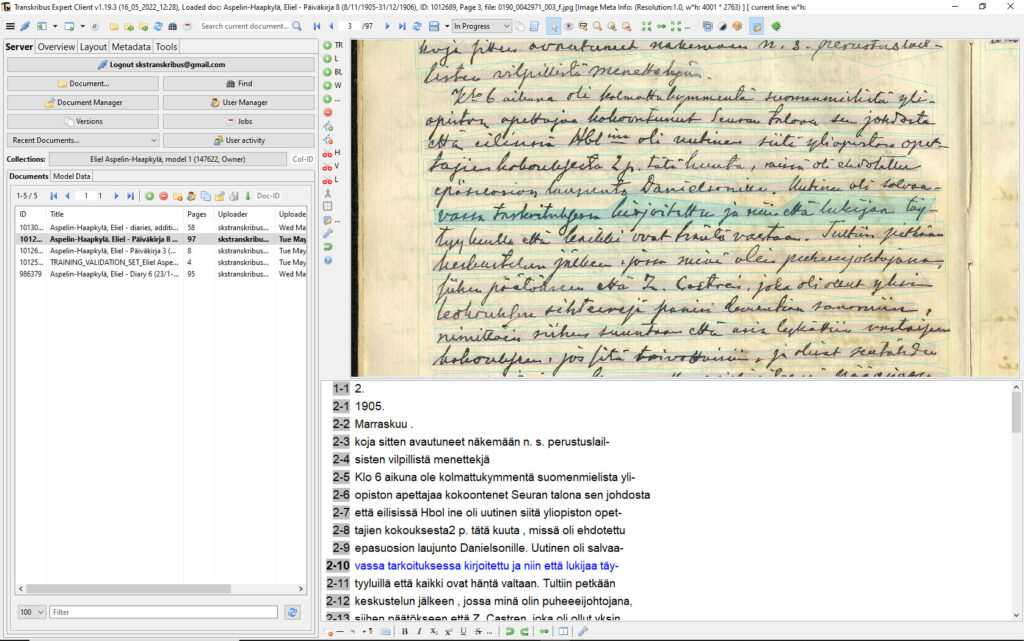 Transkribus Expert Client v1.19.3 (16_05_2022_12:28), Loaded doc: Aspelin-Haapkylä, Eliel - Päiväkirja 8 (8/11/1905-31/12/1906), ID: 1012689, Page 3, file: 0190_0042971_003_f.jpg [Image Meta Info: (Resolution:1.0, w*h: 4001 * 2763) ] [ current line: w*h:
Search current document...
3 /97
In Progress
Server Overview Layout Metadata Tools
Logout skstranskribus@gmail.com
Document... Find
Document Manager User Manager
Versions Jobs
Recent Documents... User activity
Collections: Eliel Aspelin-Haapkylä, model 1 (147622, Owner) Col-ID
Documents Model Data
1-5 / 5 1 1 Doc-ID
ID Title Pages Uploader Uploade
10130... Aspelin-Haapkylä, Eliel - diaries, additi... 58 skstranskribus... Wed Ma
1012... Aspelin-Haapkylä, Eliel - Päiväkirja 8 ... 97 skstranskribus... Tue May
10126... Aspelin-Haapkylä, Eliel - Päiväkirja 3 (... 8 skstranskribus... Tue May
10125... TRAINING_VALIDATION_SET_Eliel Aspe... 4 skstranskribus... Tue May
986379 Aspelin-Haapkylä, Eliel - Diary 6 (23/1-... 95 skstranskribus... Wed Ma
100 Filter
TR
L
BL
W
...
H
V
L
...
koja sitten avautuneet näkemään n. s. perustuslail-
listen vilpillistä menettelyä.
Klo 6 aikana oli kolmattakymmentä suomenmielistä yli-
opiston opettajaa kokoontunut Seuran talona sen johdosta
että eilisessä Hbl oli uutinen siitä yliopiston opet-
tajien kokouksesta 2 p. tätä kuuta, missä oli ehdotettu
epäsuosion lausunto Danielsonille. Uutinen oli salvaa-
vassa tarkoituksessa kirjoitettu ja niin että lukijan täy-
tyy luulla että kaikki ovat häntä vastaan. Tultiin pitkän
keskustelun jälkeen, jossa minä olin puheenjohtajana,
siihen päätökseen että Z. Castrén, joka oli ollut
kokouksen sihteerejä
nimittäin siihen suuntaan että asia lykättiin vastaiseen
kokoukseen, jos sitä toivottaisiin, ja olivat
1-1 2.
2-1 1905.
2-2 Marraskuu .
2-3 koja sitten avautuneet näkemään n. s. perustuslail-
2-4 sisten vilpillistä menettekjä
2-5 Klo 6 aikuna ole kolmattukymmentä suomenmielista yli-
2-6 opiston apettajaa kokoontenet Seuran talona sen johdosta
2-7 että eilisissä Hbol ine oli uutinen siitä yliopiston opet-
2-8 tajien kokouksesta2 p. tätä kuuta , missä oli ehdotettu
2-9 epasuosion laujunto Danielsonille. Uutinen oli salvaa-
2-10 vassa tarkoituksessa kirjoitettu ja niin että lukijaa täy-
2-11 tyyluillä että kaikki ovat häntä valtaan. Tultiin petkään
2-12 keskustelun jälkeen , jossa minä olin puheeeijohtojana,
2-13 siihen päätökseen että Z. Castren, joka oli ollut yksin